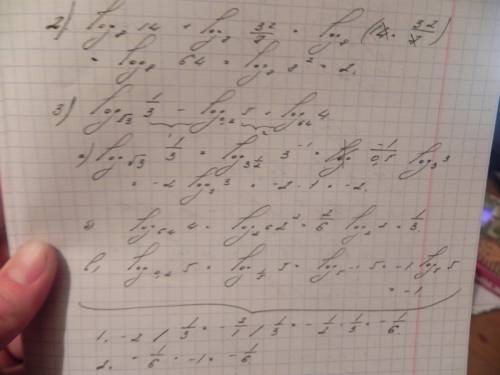 2) log₈ 14 + log₈ 32/7 = log₈ (14 · 32/7)
= log₈ 64 = log₈ 8² = 2.
3) log_√3 1/3 - log₀,₂ 5 · log₆₄ 4
а) log_√3 1/3 = log_3^1/2 3⁻¹ = -1/0,5 log₃ 3
= -2 log₃ 3 = -2 · 1 = -2.
log₆₄ 4 = log_2^6 2² = 2/6 log₂ 2 = 1/3.
в) log₀,₂ 5 = log_1/5 5 = log_5^-1 5 = -1 log₅ 5
= -1
1. -2 / 1/3 = -2/1 / 1/3 = -1/2 · 1/3 = -1/6.
2. -1/6 · -1 = -1/6.